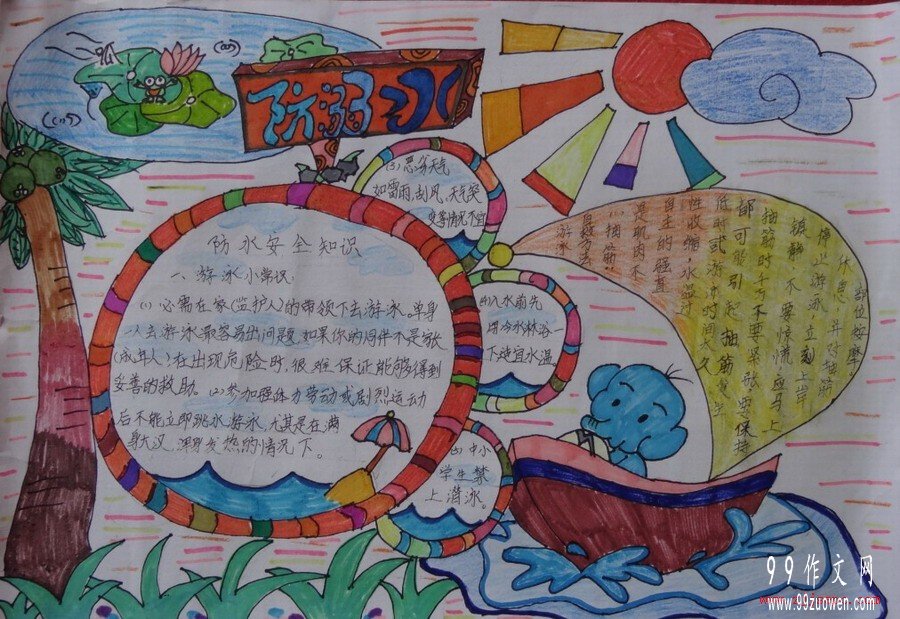 防溺水
防水安全知识
一、游泳小常识
(1)必需在家(监护人)的带领下去游泳。单身
一人去游泳最容易出问题,如果你的同伴不是家长
(成年人)在出现危险时,很难保证能够得到
妥善的救助。(2)参加强体力劳动或剧烈运动
后不能立即跳水游泳,尤其是在满
身大汉,浑身发热的情况下。
(3)恶劣天气
如雷雨,刮风、天气突
变等情况不宜
游泳
(4)入水前先
用冷水淋浴
下适宜水温
中小
学生禁
上潜泳。
自救方法
"抽筋"
是肌肉不
自主的强直
性收缩,水温过
低时或游泳时间太久
都可能引起抽筋,发生
抽筋时千万不要紧张,要保持
镇静,不要惊慌,应马上
停止游泳,立刻上岸
休息,并对抽筋
部位按摩
99作文网
www.99zuowen.com